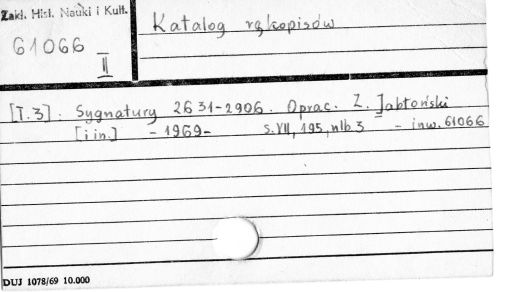 Zakł. Hist. Nauki i Kult.
Katalog rękopisów
61066
II
[T.3]. Sygnatury 2631-2906. Oprac. Z. Jabłoński
[i in.] - 1969- s. VII, 195, nlb 3 - inw. 61066
DUJ 1078/69 10.000